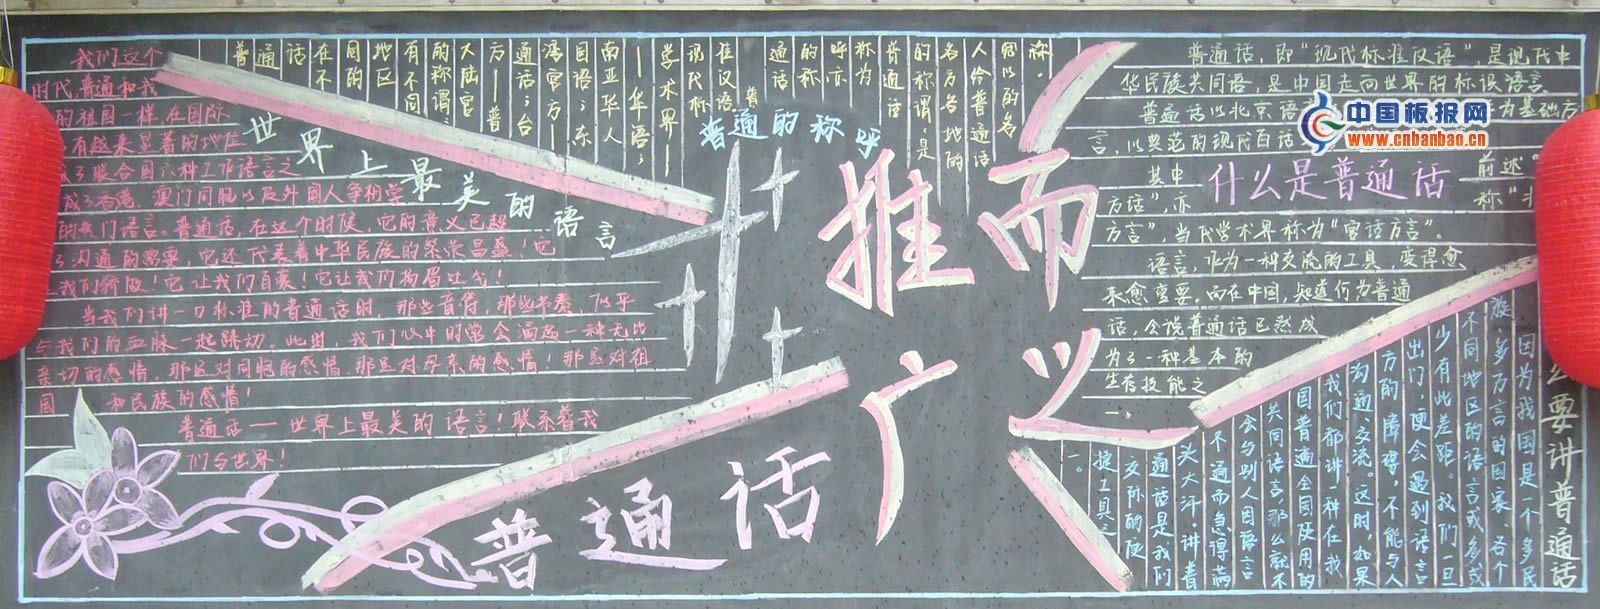 世界上最美的语言
我们这个
时代,普通和我
的祖国一样,在国际
有越来显著的地位
联合国六种工作语言之
成了香港、澳门同胞以及外国人争相学
的热门语言。普通话,在这个时候,它的意义已超
了沟通的需要,它还代表着中华民族的繁荣昌盛!它
我们骄傲!它让我们自豪!它让我们扬眉吐气!
当我们讲一口标准的普通话时,那些音符,那些节奏,似乎
与我们的血脉一起跳动。此时,我们心中时常会涌起一种无比
亲切的感情,那是对同胞的感情,那是对母亲的感情!那是对祖
国和民族的感情!
普通话——世界上最美的语言!联系着我
们与世界!
普通的称呼
称。
赋以的名
人给普通话
名方各地的
的称谓:是
普通话
称为
呼亦
的称
通话
普
准汉语
现代标
学术界——
——华语;
南亚华人
国语;东
湾官方——
通话;台
方——普
大陆官
的称谓:
有不同
地区
同的
在不
话
通
普
推而广之
普通话
什么是普通话
普通话,即“现代标准汉语”,是现代中
华民族共同语,是中国走向世界的标识语言。
普通话以北京语
为基础方
言,以典范的现代白话
其中
前述“
方话”,亦
称“北
方言”,当代学术界称为“官话方言”。
语言,作为一种交流的工具,变得愈
来愈重要,而在中国,知道何为普通
话,会说普通话已然成
为了一种基本的
生存技能之
一。
要讲普通话
因为我国是一个多民
族、多方言的国家、各个
不同地区的语言或多或
少有此差距。我们一旦
出门,便会遇到语言
方的障碍,不能与人
沟通交流。这时,如果
我们都讲一种在我
国普通全国使用的
共同语言,那么就不
会与别人因语言
不通而急得满
头大汗。讲普
通话是我们
交际的便
捷工具之
一。
中国板报网
www.cnbanbao.cn